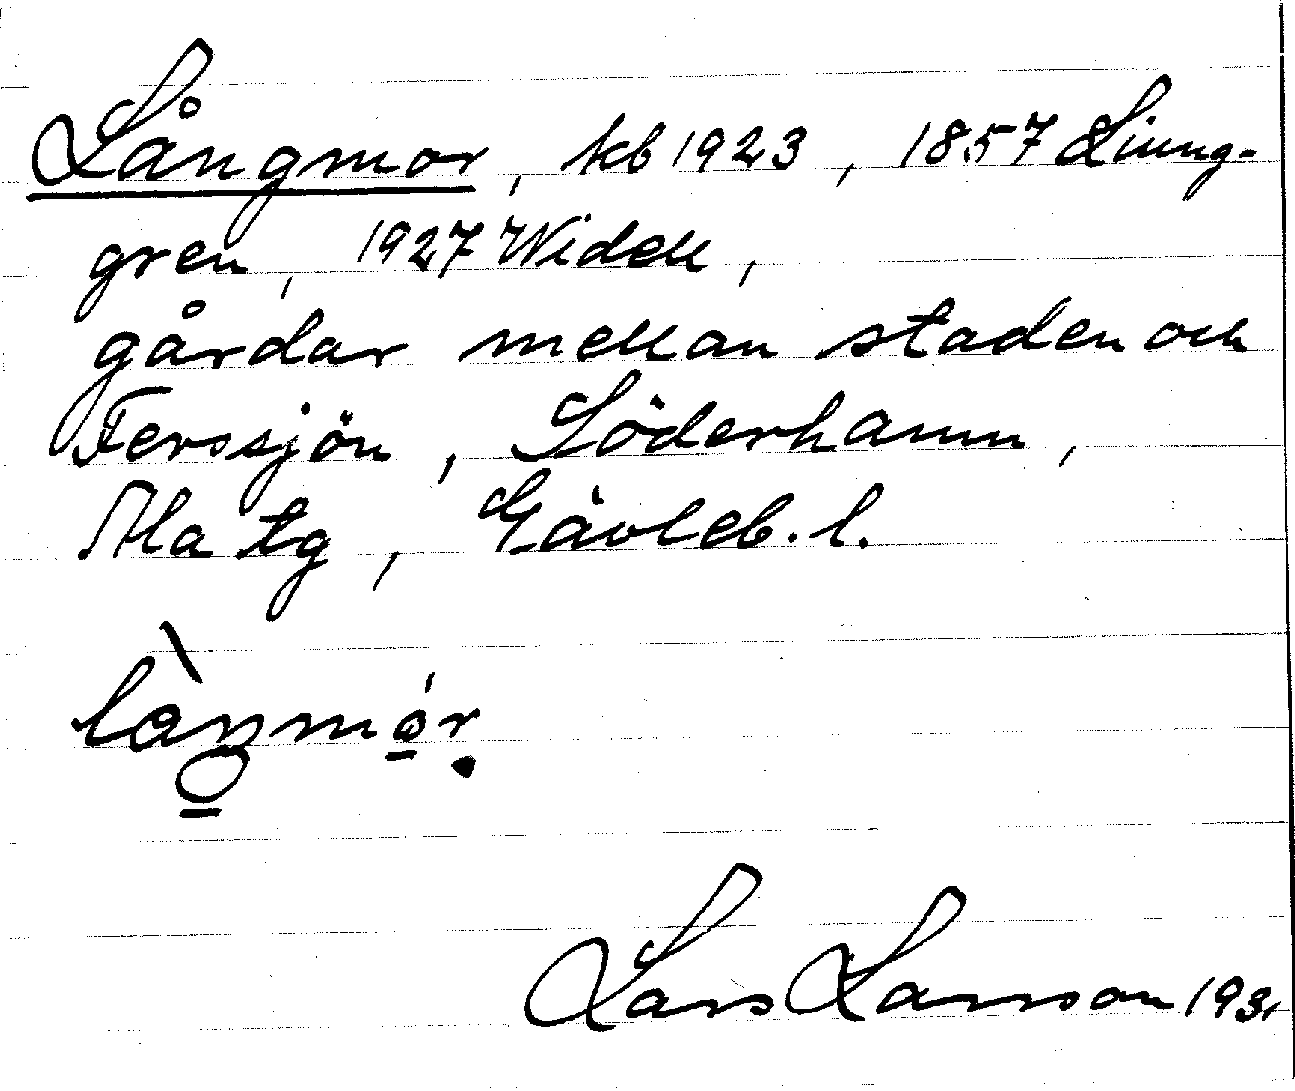 Långmor, kb 1923, 1857 Ljung-
gren, 1927 Widell,
gårdar mellan staden och
Ferssjön, Söderhamn,
Ala tg, Gävleb. l.
Lars Larsson 1931